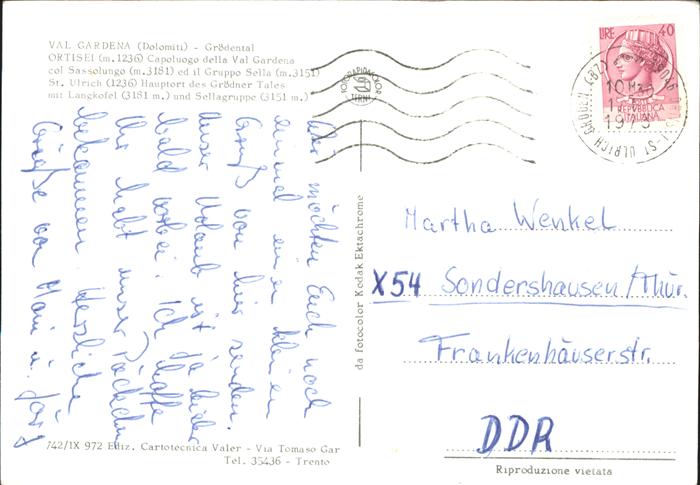 VAL GARDENA (Dolomiti) - Grödental
ORTISEI (m. 1236) Capoluogo della Val Gardena
col Sassolungo (m. 3181) ed il Gruppo Sella (m. 3151)
St. Ulrich (1236) Hauptort des Grödner Tales
mit Langkofel (3181 m.) und Sellagruppe (3151 m.)
Wir möchten Euch noch
einmal einen kleinen
Gruß von hier senden.
Unser Urlaub ist ja leider
bald vorbei. Ich hoffe
Ihr habt unser Päckchen
bekommen. Herzliche
Grüße von
742/IX 972 Ediz. Cartotecnica Valer - Via Tomaso Gar
Tel. 35436 - Trento
da fotocolor Kodak Ektachrome
LIRE 40
REPUBBLICA
ITALIANA
ST ULRICH GRÖDEN (BZ)
1973
TERNI
Martha Wenkel
X54 Sondershausen/Thür.
Frankenhäuserstr.
DDR
Riproduzione vietata